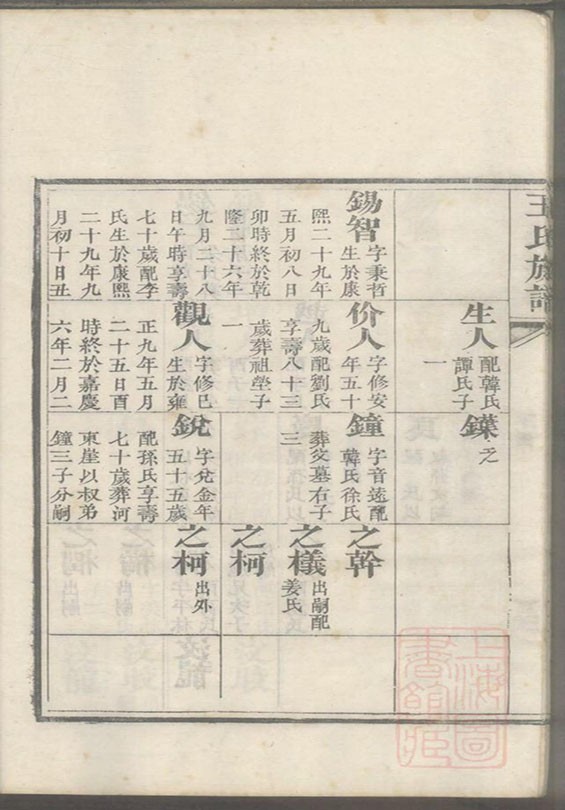 王氏族譜
錫智
字秉哲
生於康
熙二十九年
五月初八日
卯時終於乾
隆二十六年
九月二十八
日午時享壽
七十歲配李
氏生於康熙
二十九年九
月初十日丑
生人
配韓氏
譚氏子
一
价人
字修安
年五十
九歲配劉氏
享壽八十三
歲葬祖塋子
一
觀人
字修巳
生於雍
正九年五月
二十五日酉
時終於嘉慶
六年二月二
鏷
乏
鐘
字音遠配
韓氏徐氏
葬炎墓右子
三
銳
字兌金年
五十五歲
配孫氏享壽
七十歲葬河
東崖以叔弟
鐘三子分嗣
之幹
之檥
出嗣配
姜氏
之柯
之柯
出外
上海圖
書館藏